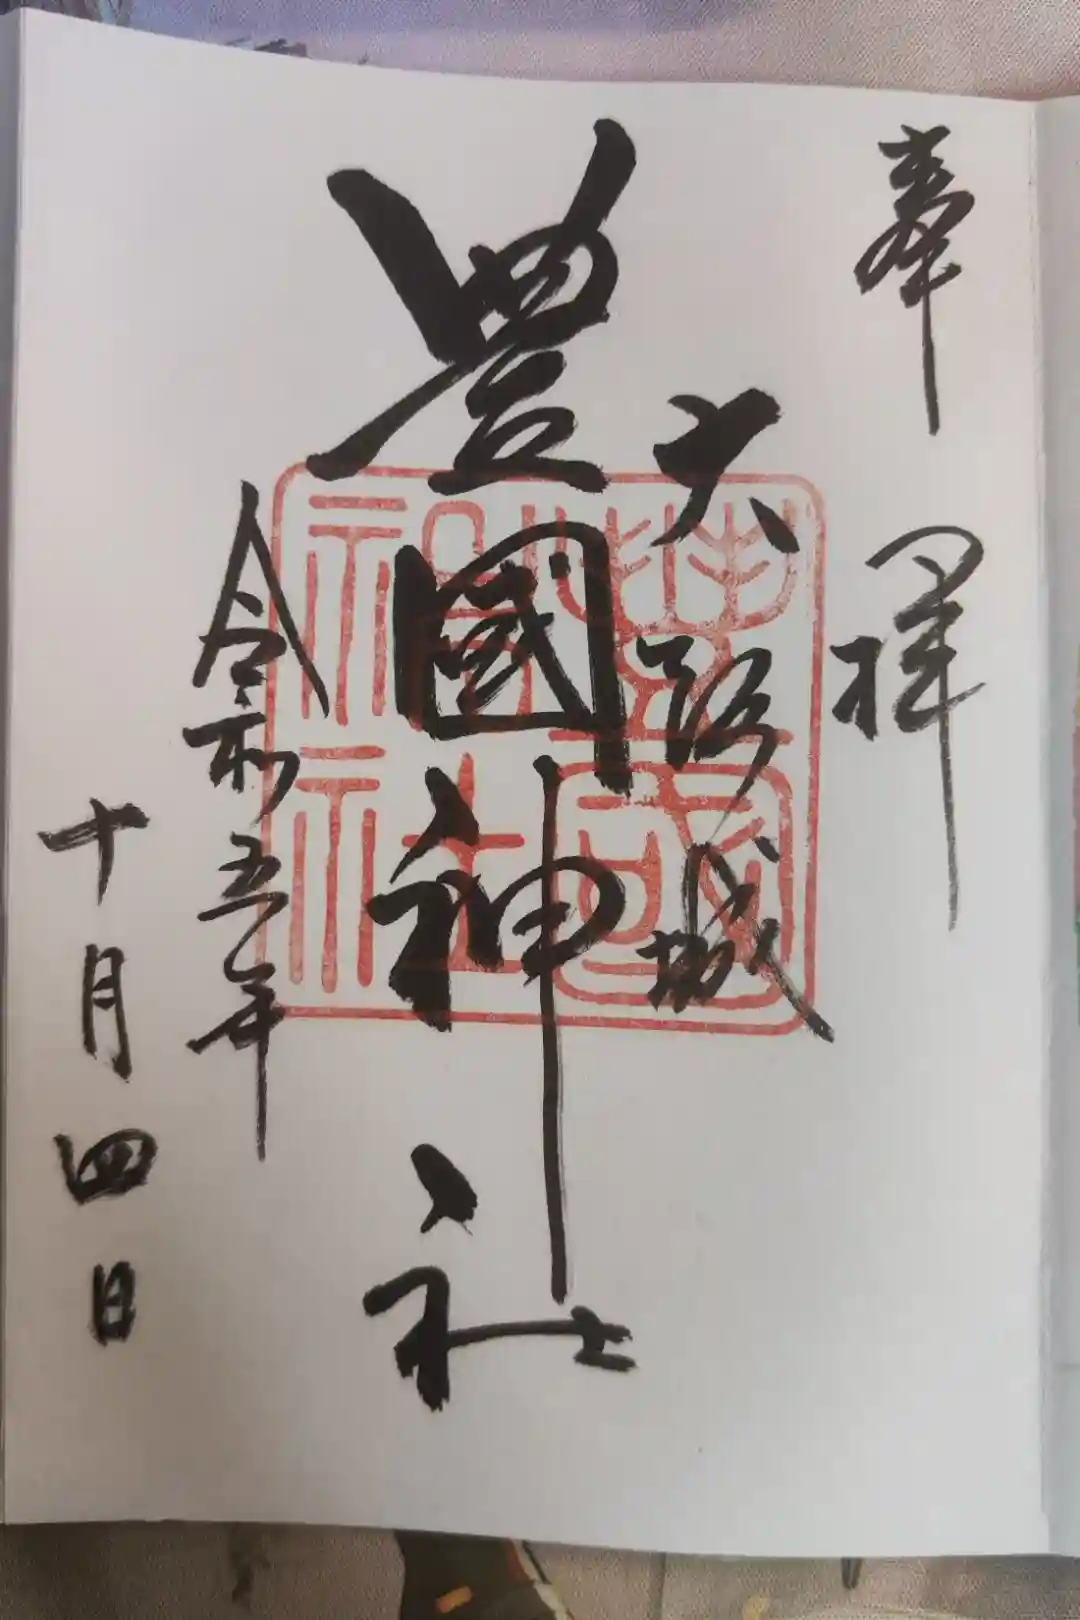 奉拝
大阪城
豊國神社
令和五年
十月四日
豐國
神社